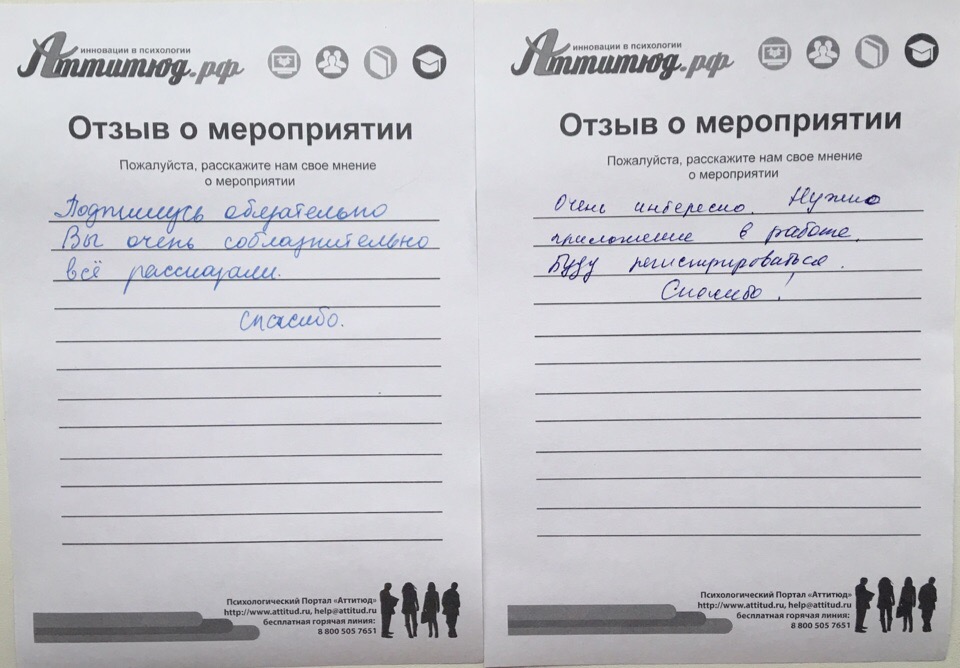 инновации в психологии
Аттитюд.рф
Отзыв о мероприятии
Пожалуйста, расскажите нам свое мнение
о мероприятии
Подпишусь обязательно
Вы очень соблазнительно
всё рассказали.
спасибо.
Психологический Портал «Аттитюд»
http://www.attitud.ru, help@attitud.ru
бесплатная горячая линия:
8 800 505 7651
инновации в психологии
Аттитюд.рф
Отзыв о мероприятии
Пожалуйста, расскажите нам свое мнение
о мероприятии
Очень интересно. Нужно
приложение в работе.
Буду регистрироваться.
Спасибо!
Психологический Портал «Аттитюд»
http://www.attitud.ru, help@attitud.ru
бесплатная горячая линия:
8 800 505 7651